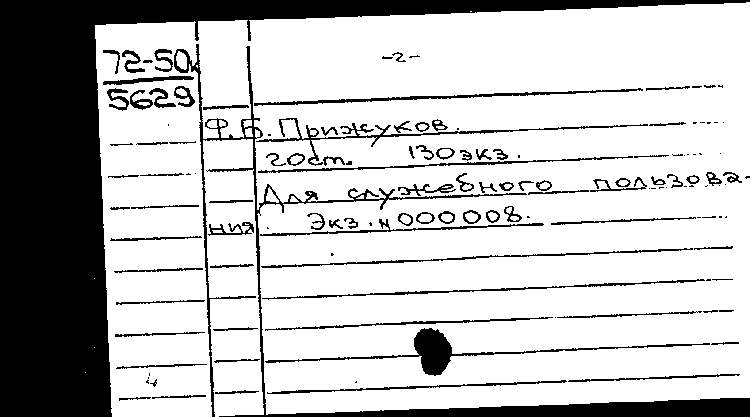 72-50к
5629
-2-
Ф.Б. Прижуков.
20 ст. 130 экз.
Для служебного пользова-
ния. Экз. N 000008.
4